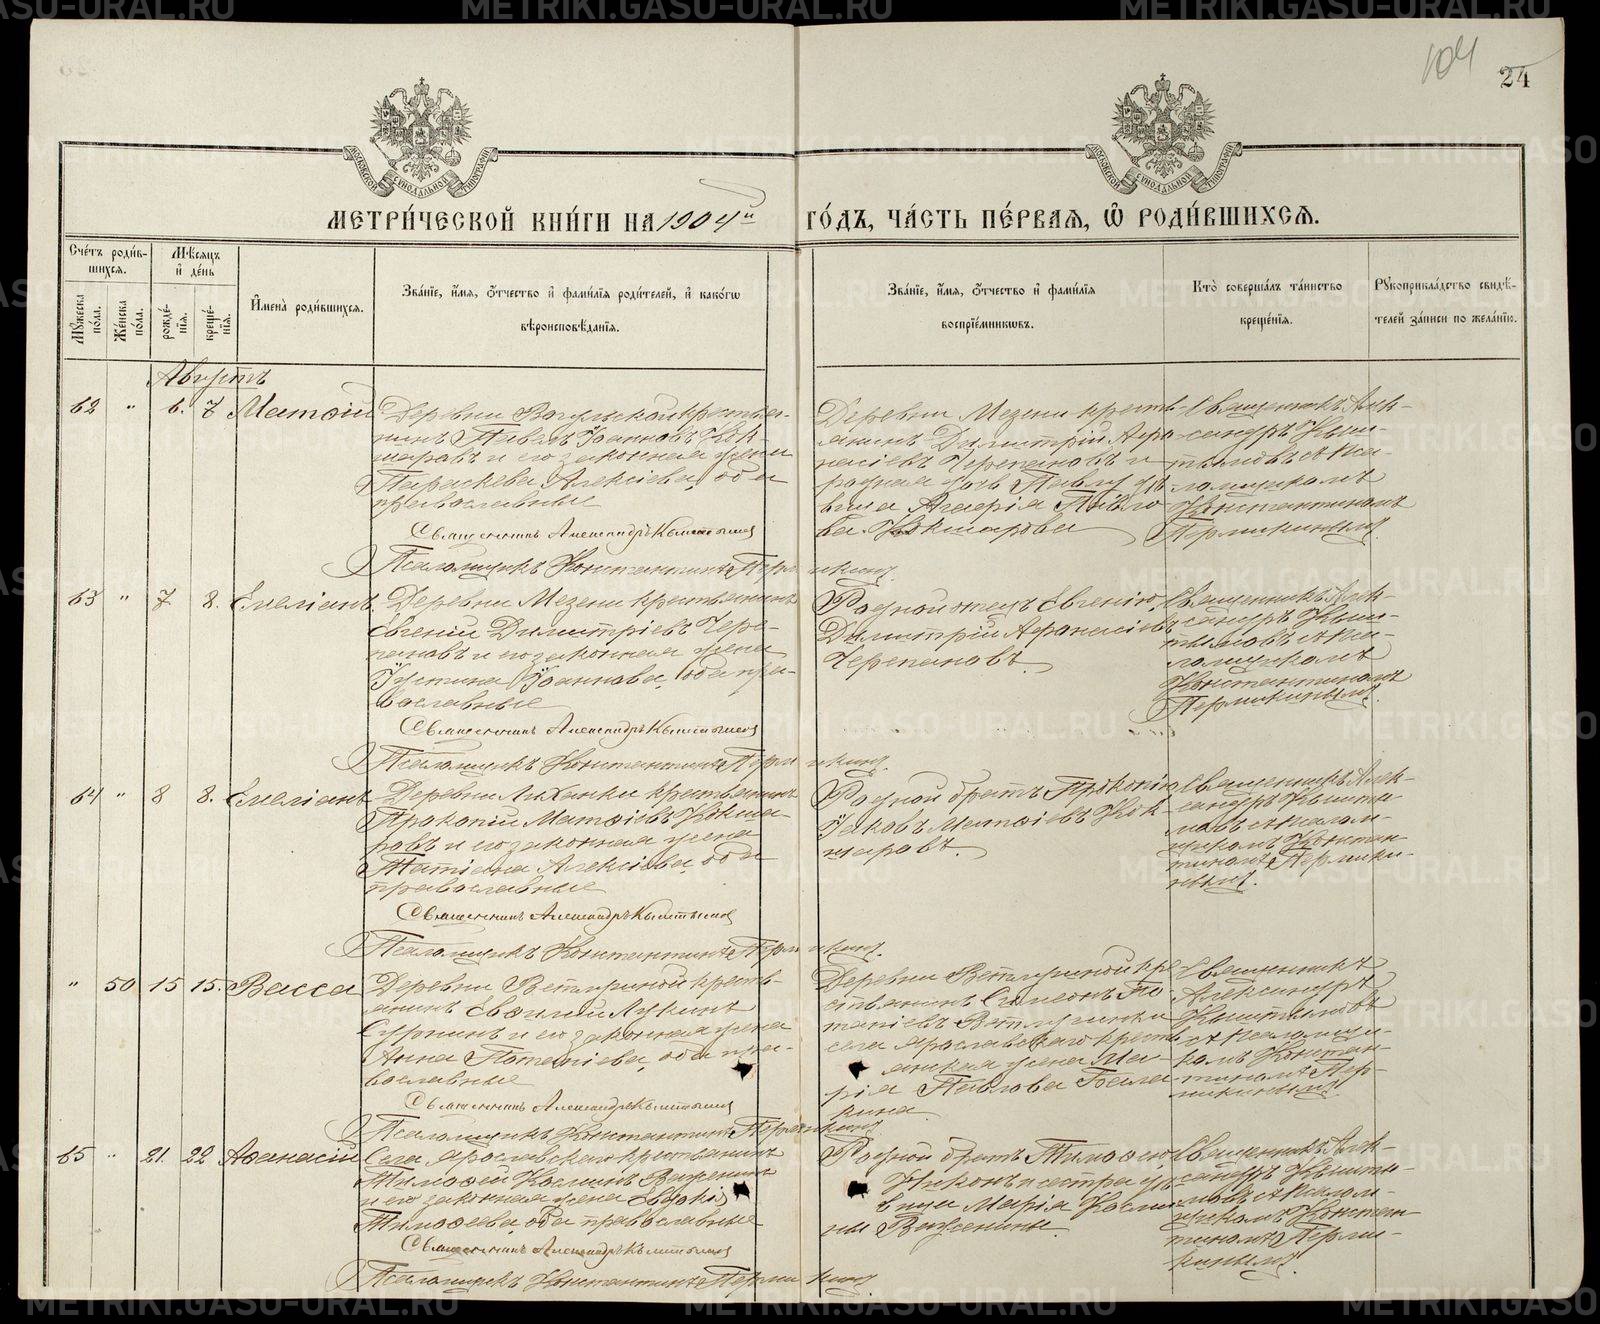 METRIKI.GASO-URAL.RU
104
24
МОСКОВСКОЙ СѴНОДАЛЬНОЙ ТИПОГРАФІИ
МОСКОВСКОЙ СѴНОДАЛЬНОЙ ТИПОГРАФІИ
МЕТРИ́ЧЕСКОЙ КНИ́ГИ НА 1904й ГО́ДЪ, ЧА́СТЬ ПЕ́РВАЯ, Ѡ РОДИ́ВШИХСЯ.
Сче́тъ роди́вшихся.
Мѣ́сяцъ и де́нь
Мꙋ́жеска по́ла.
Же́нска по́ла.
рожде́нїя.
креще́нїя.
И҆мена̀ роди́вшихся.
Зва́нїе, и҆́мя, ѻ҆́тчество и҆ фами́лїя роди́телей, и҆ како́гѡ вѣроисповѣ́данїя.
Зва́нїе, и҆́мя, ѻ҆́тчество и҆ фами́лїя воспрїе́мникѡвъ.
Кто̀ соверша́лъ та́инство креще́нїя.
Рꙋкоприкла́дство свидѣ́телей за́писи по жела́нїю.
Августъ
62 " 6. 7 Матѳій
Деревни Вогульской крестья-
нинъ Павелъ Іоанновъ Кок-
шаровъ и его законная жена
Параскева Алексіева, оба
православные
Священникъ Александръ Кыштымов
Псаломщикъ Константинъ Пермикинъ
Деревни Мезени кресть-
янинъ Димитрій Афа-
насіевъ Черепановъ и
родная дочь Павлу дѣ-
вица Агафія Павло-
ва Кокшарова
Священникъ Алек-
сандръ Кыш-
тымовъ съ Пса-
ломщикомъ
Константиномъ
Пермикинымъ
63 " 7 8. Емеліанъ
Деревни Мезени крестьянинъ
Евгеній Димитріевъ Чере-
пановъ и его законная жена
Іустина Іоаннова, оба пра-
вославные
Священникъ Александръ Кыштымов
Псаломщикъ Константинъ Пермикинъ
Родной отецъ Евгенію
Димитрій Афанасіевъ
Черепановъ
Священникъ Алек-
сандръ Кыш-
тымовъ съ Пса-
ломщикомъ
Константиномъ
Пермикинымъ
64 " 8 8. Емеліанъ
Деревни крестьянинъ
Прокопій Матѳіевъ Кокша-
ровъ и его законная жена
Татіана Алексіева, оба
православные
Священникъ Александръ Кыштымов
Псаломщикъ Константинъ Пермикинъ
Родной братъ Прокопію
Іаковъ Матѳіевъ Кок-
шаровъ.
Священникъ Алек-
сандръ Кышты-
мовъ съ Псалом-
щикомъ Констан-
тиномъ Пермики-
нымъ.
" 50 15 15. Васса
Деревни Ветлугиной кресть-
янинъ Евѳимій Лукинъ
Сурнинъ и его законная жена
Анна Потапіева, оба пра-
вославные
Священникъ Александръ Кыштымов
Псаломщикъ Константинъ Пермикинъ
Деревни Ветлугиной кре-
стьянинъ Симеонъ По-
тапіевъ Ветлугинъ и
села Ярославскаго кресть-
янская жена Ма-
рія Павлова
Священникъ
Александръ
Кыштымовъ
съ Псаломщи-
комъ Констан-
тиномъ Пер-
микинымъ
65 " 21. 22 Аѳанасій
Села Ярославскаго крестьянинъ
Тимоѳей Косминъ Важенинъ
и его законная жена Евдокія
Тимоѳеева, оба православные
Священникъ Александръ Кыштымов
Псаломщикъ Константинъ Пермикинъ
Родной братъ Тимоѳею
Никонъ и сестра дѣ-
вица Марія Косми-
ны Важенины.
Священникъ Алек-
сандръ Кышты-
мовъ съ Псалом-
щикомъ Констан-
тиномъ Перми-
кинымъ.